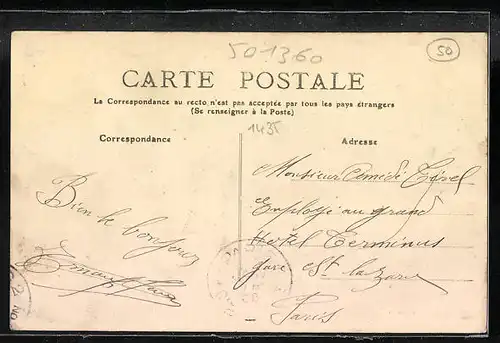 501360
50
CARTE POSTALE
La Correspondance au recto n'est pas acceptée par tous les pays étrangers
(Se renseigner à la Poste)
1435
Correspondance
Adresse
Monsieur
Employé au grand
Bien le bonjour
Hôtel Terminus
gare St Lazare
Paris